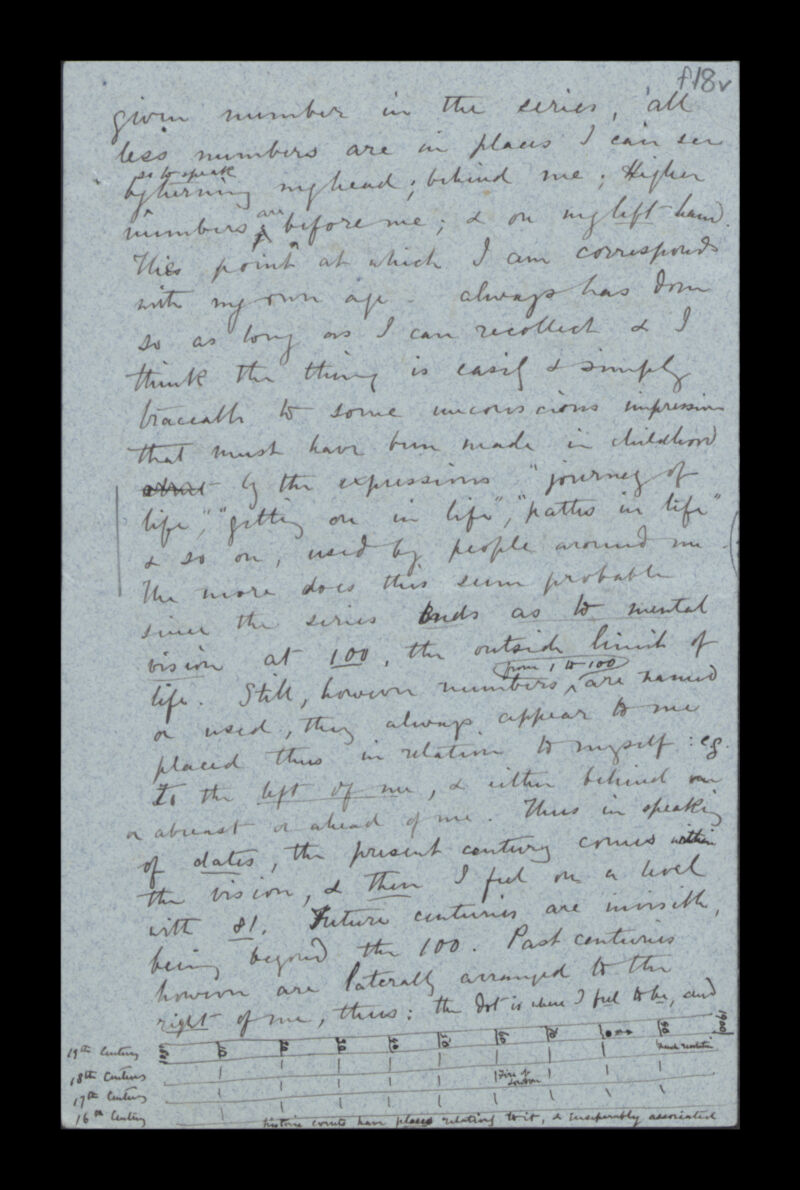 f18v
given number in the series, all
less numbers are in places I can see
so to speak
by turning my head; behind me; Higher
numbers are before me; & on my left hand.
This point at which I am corresponds
with my own age – always has done
so as long as I can recollect & I
think the thing is easily & simply
traceable to some unconscious impression
that must have been made in childhood
by the expressions "journey of
life", "getting on in life", "paths in life"
& so on, used by people around me.
The more does this seem probable
since the series ends as to mental
vision at 100, the outside limit of
from 1 to 100
life. Still, however numbers ^ are named
or used, they always appear to me
placed thus in relation to myself: eg.
To the left of me, & either behind me
or abreast or ahead of me. Thus in speaking
of dates, the present century comes within
the vision, & then I feel on a level
with 81. Future centuries are invisible,
being beyond the 100. Past centuries
however are laterally arranged to the
right of me, thus: the dot is where I feel to be, and
19th Century 10 20 30 40 50 60 70 90 1900
18th Century
Fire of London
17th Century
16th Century
historic events have places relating to it, & inseparably associated